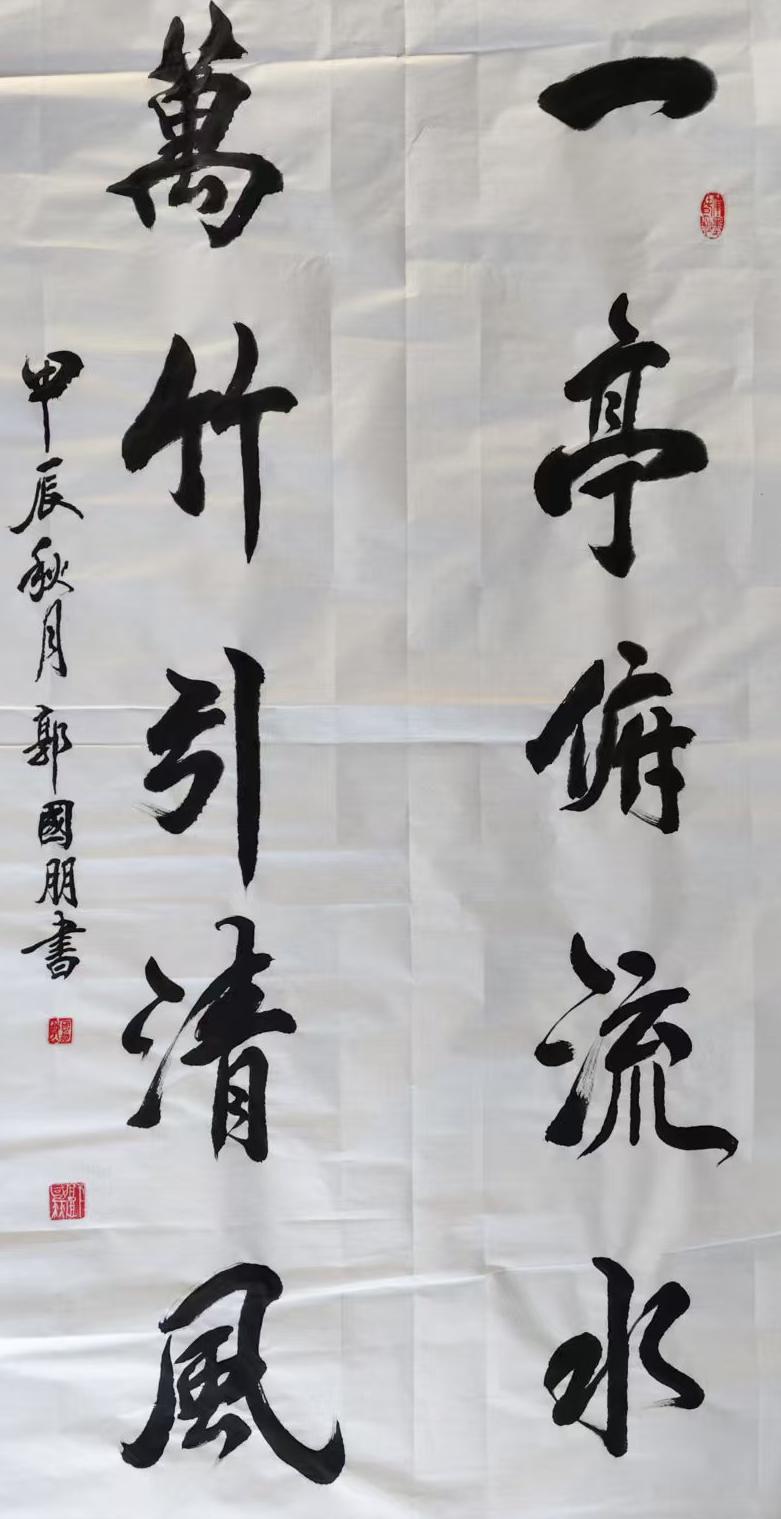 一亭俯流水
萬竹引清風
甲辰秋月郭國朋書